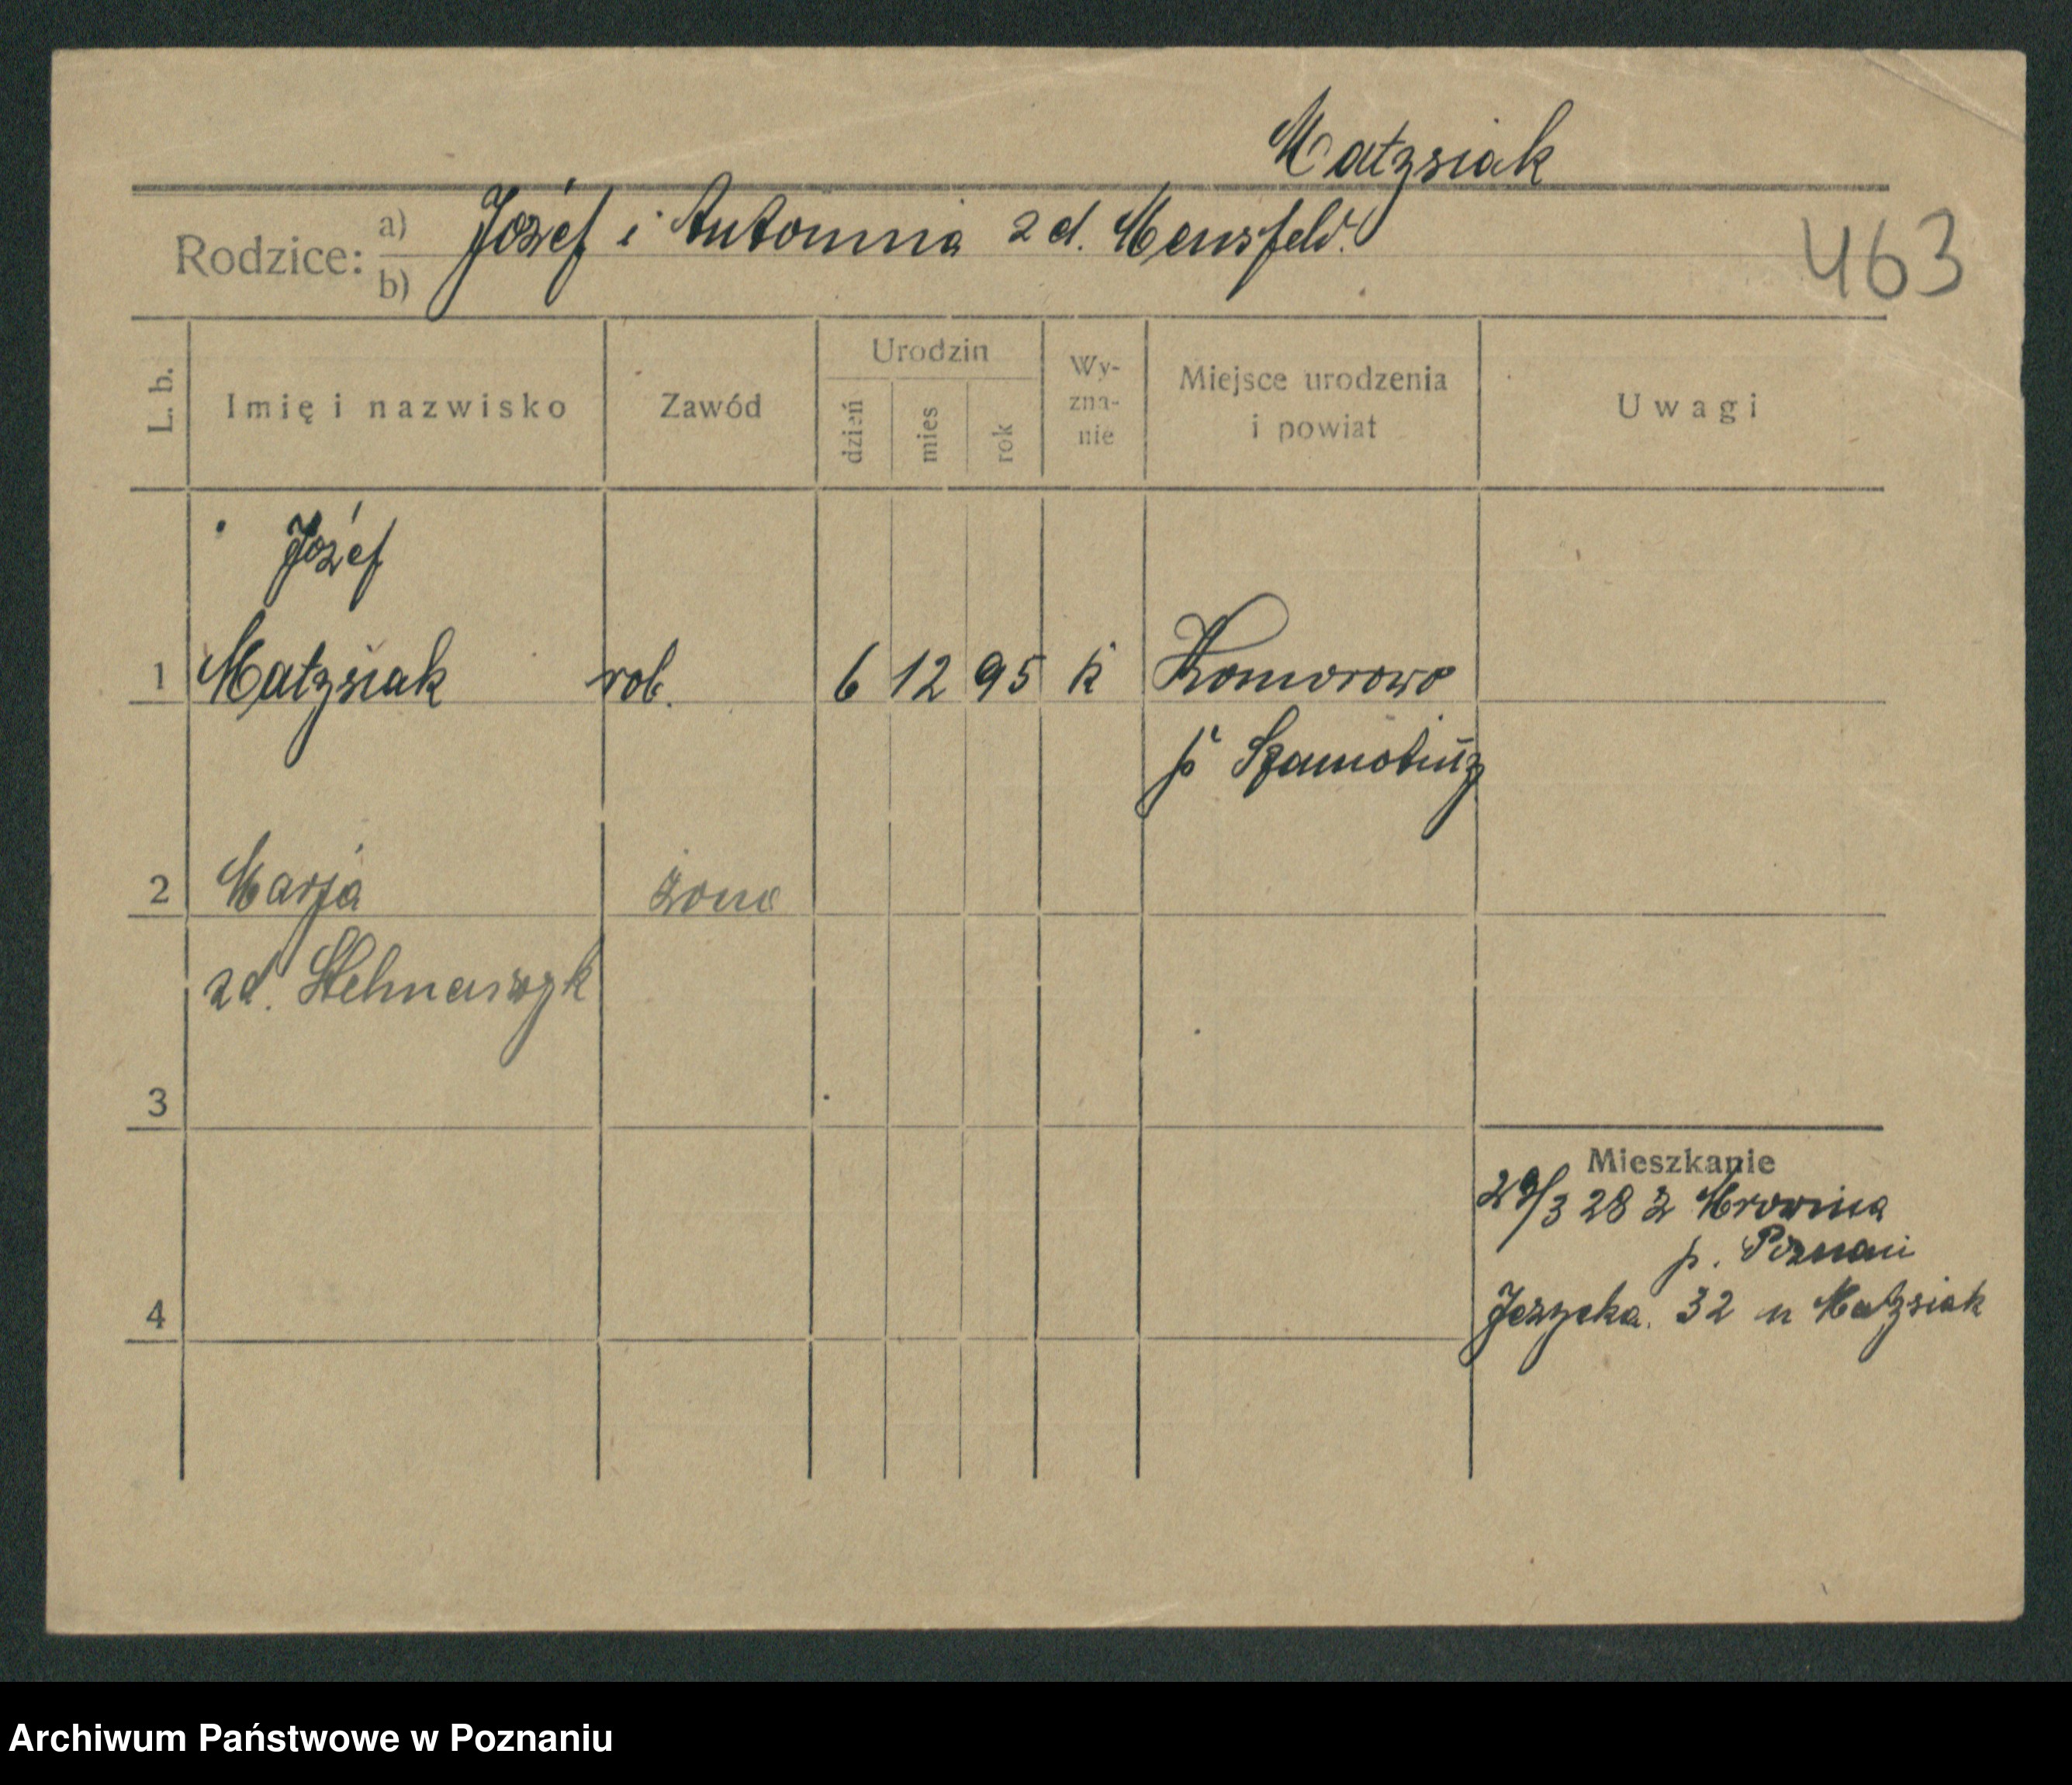 Matysiak
Rodzice: a) Józef i Antonina z d. Mensfeld.
b)
463
L. b. Imię i nazwisko Zawód Urodzin dzień mies rok Wy-zna-nie Miejsce urodzenia i powiat Uwagi
Józef
1 Matysiak rob. 6 12 95 k Komorowo
p. Szamotuły
2 Marja żona
zd.
3
Mieszkanie
29/3 28 z Mrowina
p. Poznań
4 Jeżycka. 32 u Matysiak
Archiwum Państwowe w Poznaniu